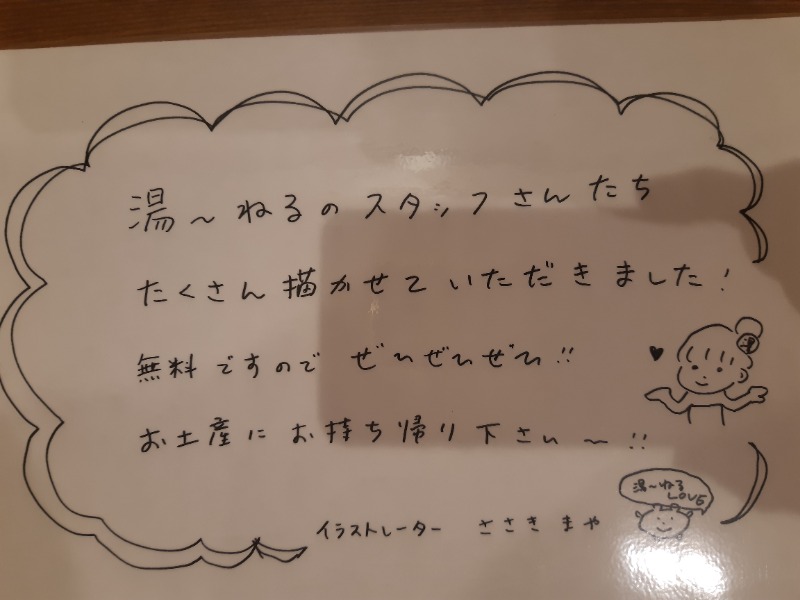 湯～ねるのスタッフさんたち
たくさん描かせていただきました!
無料ですので ぜひぜひぜひ!!
お土産にお持ち帰り下さい～!!
湯～ねる
LOVE
イラストレーター ささき まや